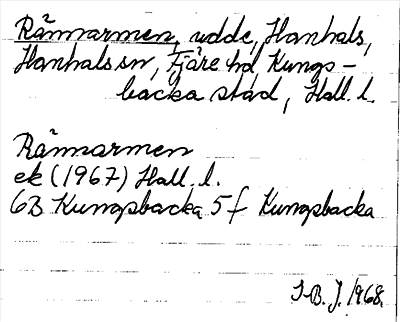 Rännarmen, udde, Hanhals,
Hanhals sn, Fjäre hd, Kungs-
backa stad, Hall. l.
Rännarmen
ek (1967) Hall. l.
6B Kungsbacka 5f Kungsbacka
S.B.J. 1968.